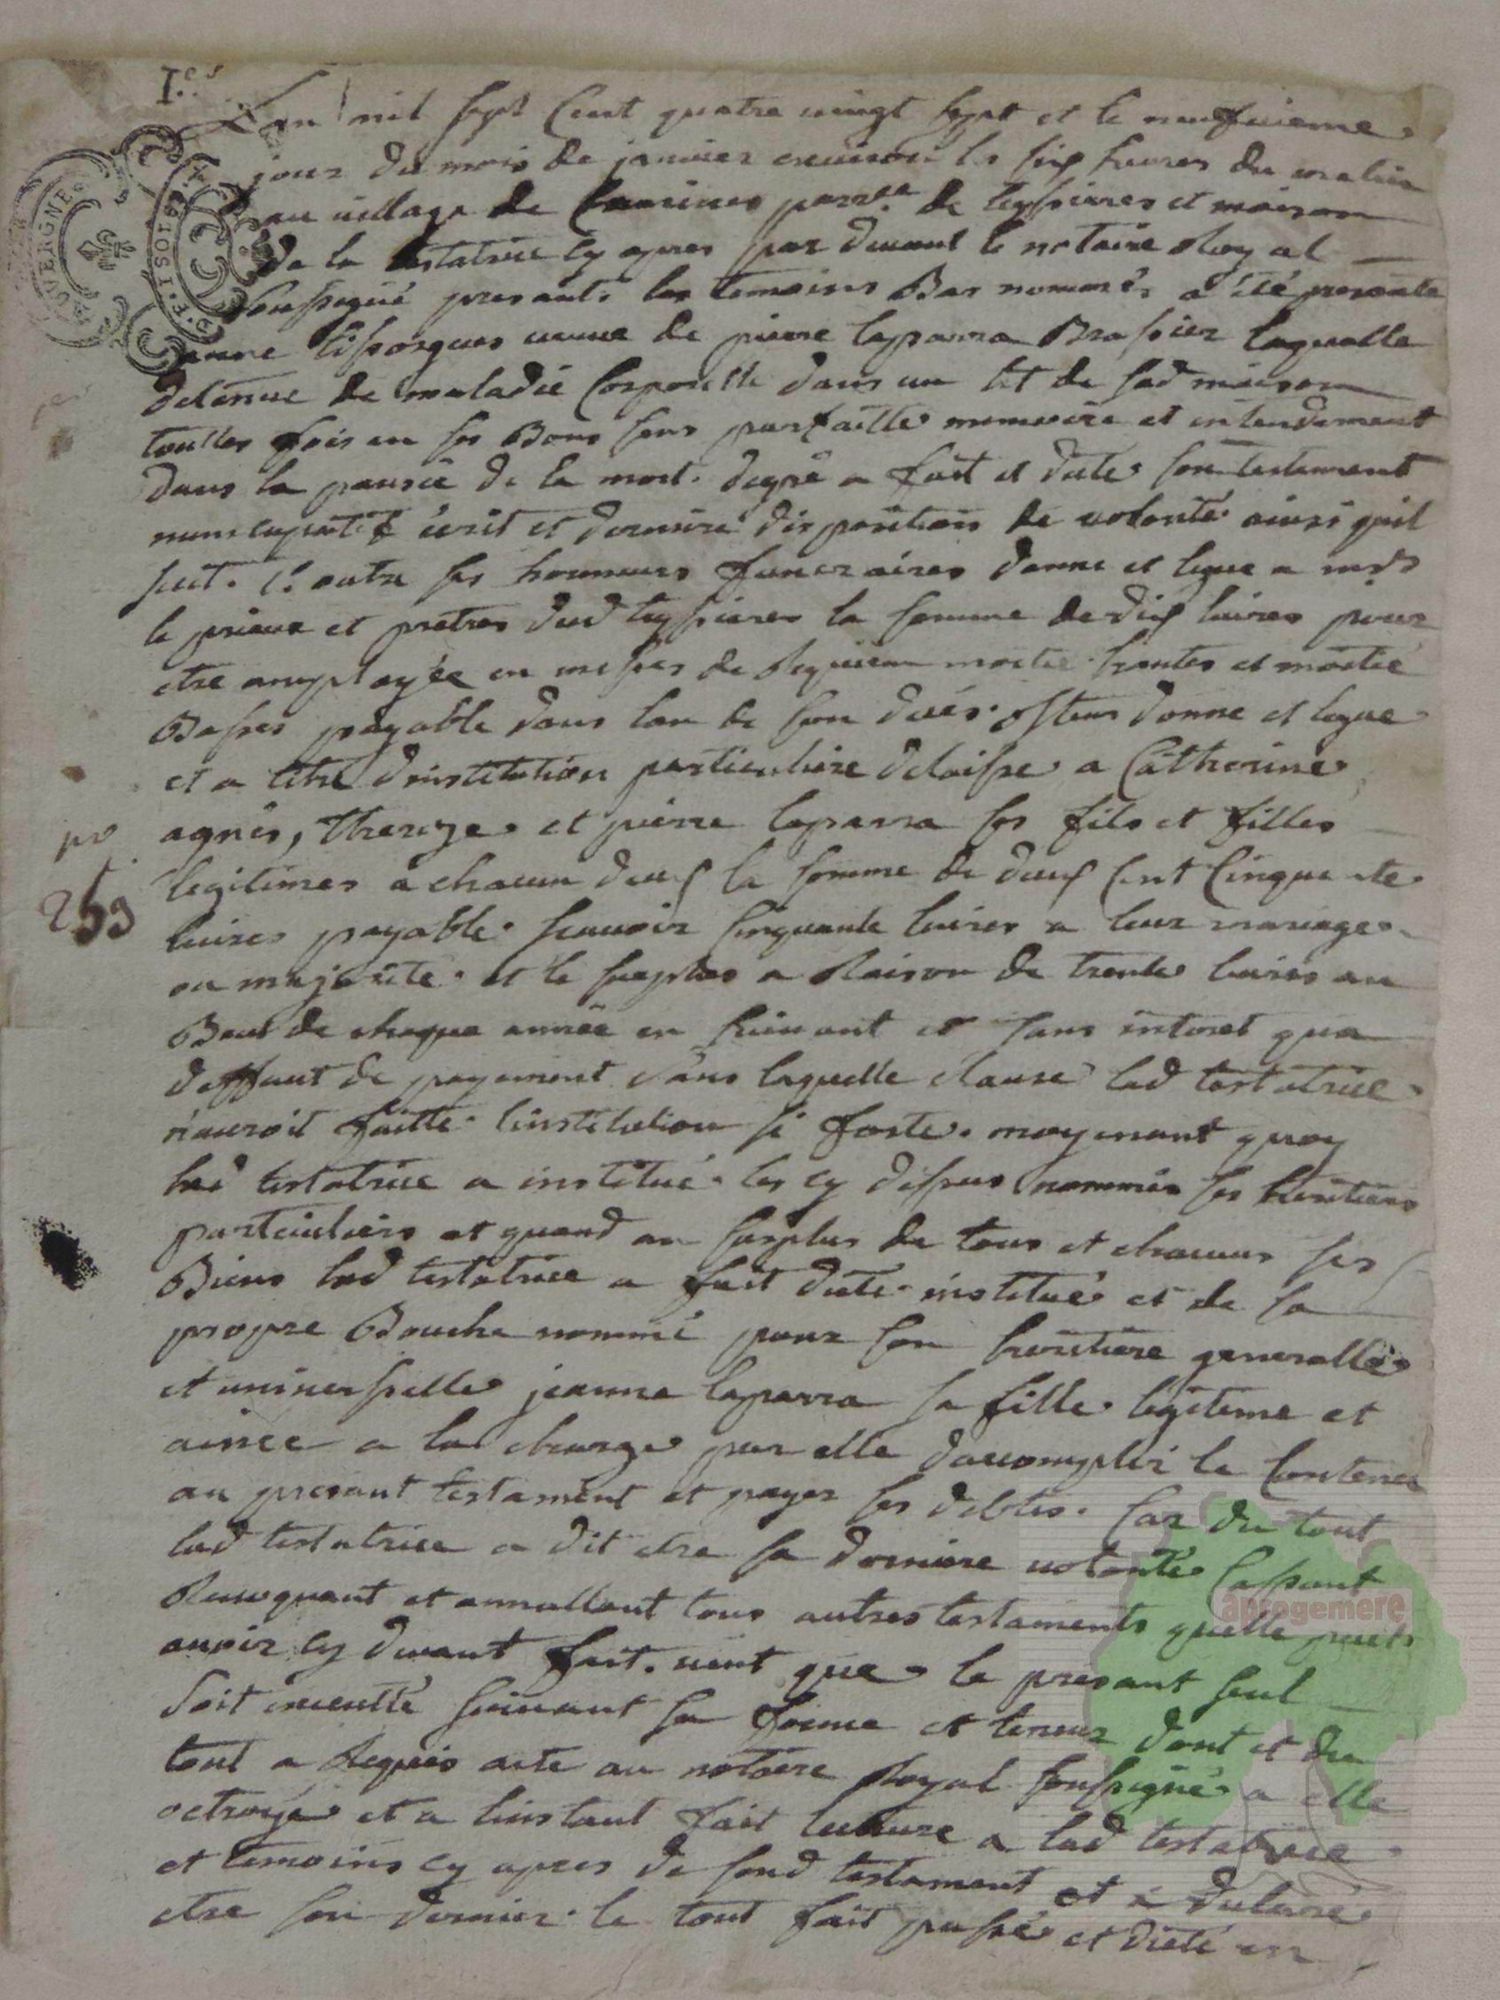 I.es
Lan mil sept Cent quatre vingt sept et le neufvieme
jour du mois de janvier environ les six heures du matin
au village de parr.se de teyssieres et maison
De la testatrice cy apres par devant le notaire Royal
soussigné presants les temoins Bas nommés a été presante
jeanne veuve de pierre laparra Brassier laquelle
detenue de maladie Corporelle dans un lit de sad maison
touttes fois en ses Bons sens parfaitte memoire et entendement
dans la pansée de la mort. degré a fait et dicté son testament
nuncupatif écrit et derniere disposition de volonté ainsi quil
suit. outre ses honneurs funeraires donne et legue a mrs
le prieur et pretres dud teyssieres la somme de dix livres pour
etre employée en messes de Requiem moitié hautes et moitié
Basses payable dans lan de son décés. donne et legue
et a titre dinstitution particuliere delaisse a Catherine
agnès, thereze et pierre laparra ses fils et filles
legitimes a chacun deux la somme de deux Cent Cinquante
livres payable scavoir Cinquante livres a leur mariage
ou majorité et le surplus a Raison de trente livres au
Bout de chaque année en suivant et sans interet qua
deffaut de payement sans laquelle clause lad testatrice
nauroit faitte linstitution si forte. moyenant quoy
lad testatrice a institué les cy dessus nommés ses heritiers
particuliers et quand au surplus de tous et chacuns ses
Biens lad testatrice a fait dicté institué et de sa
propre Bouche nommé pour son heritiere generalle
et universselle jeanne laparra sa fille legitime et
ainée a la charge par elle daccomplir le Contenu
au presant testament et payer ses debtes. Car du tout
lad testatrice a dit etre sa derniere volonté Cassant
Revoquant et annullant tous autres testaments quelle peut
avoir cy devant fait. veut que le presant seul
soit executté suivant sa forme et teneur dont et du
tout a Requis acte au notaire Royal soussigné a elle
octroyé et a linstant fait lecture a lad testatrice
et temoins cy apres de sond testament et a declaré
etre son dernier. le tout fait passé et dicté en
pr
253
AUVERGNE
aprogemere